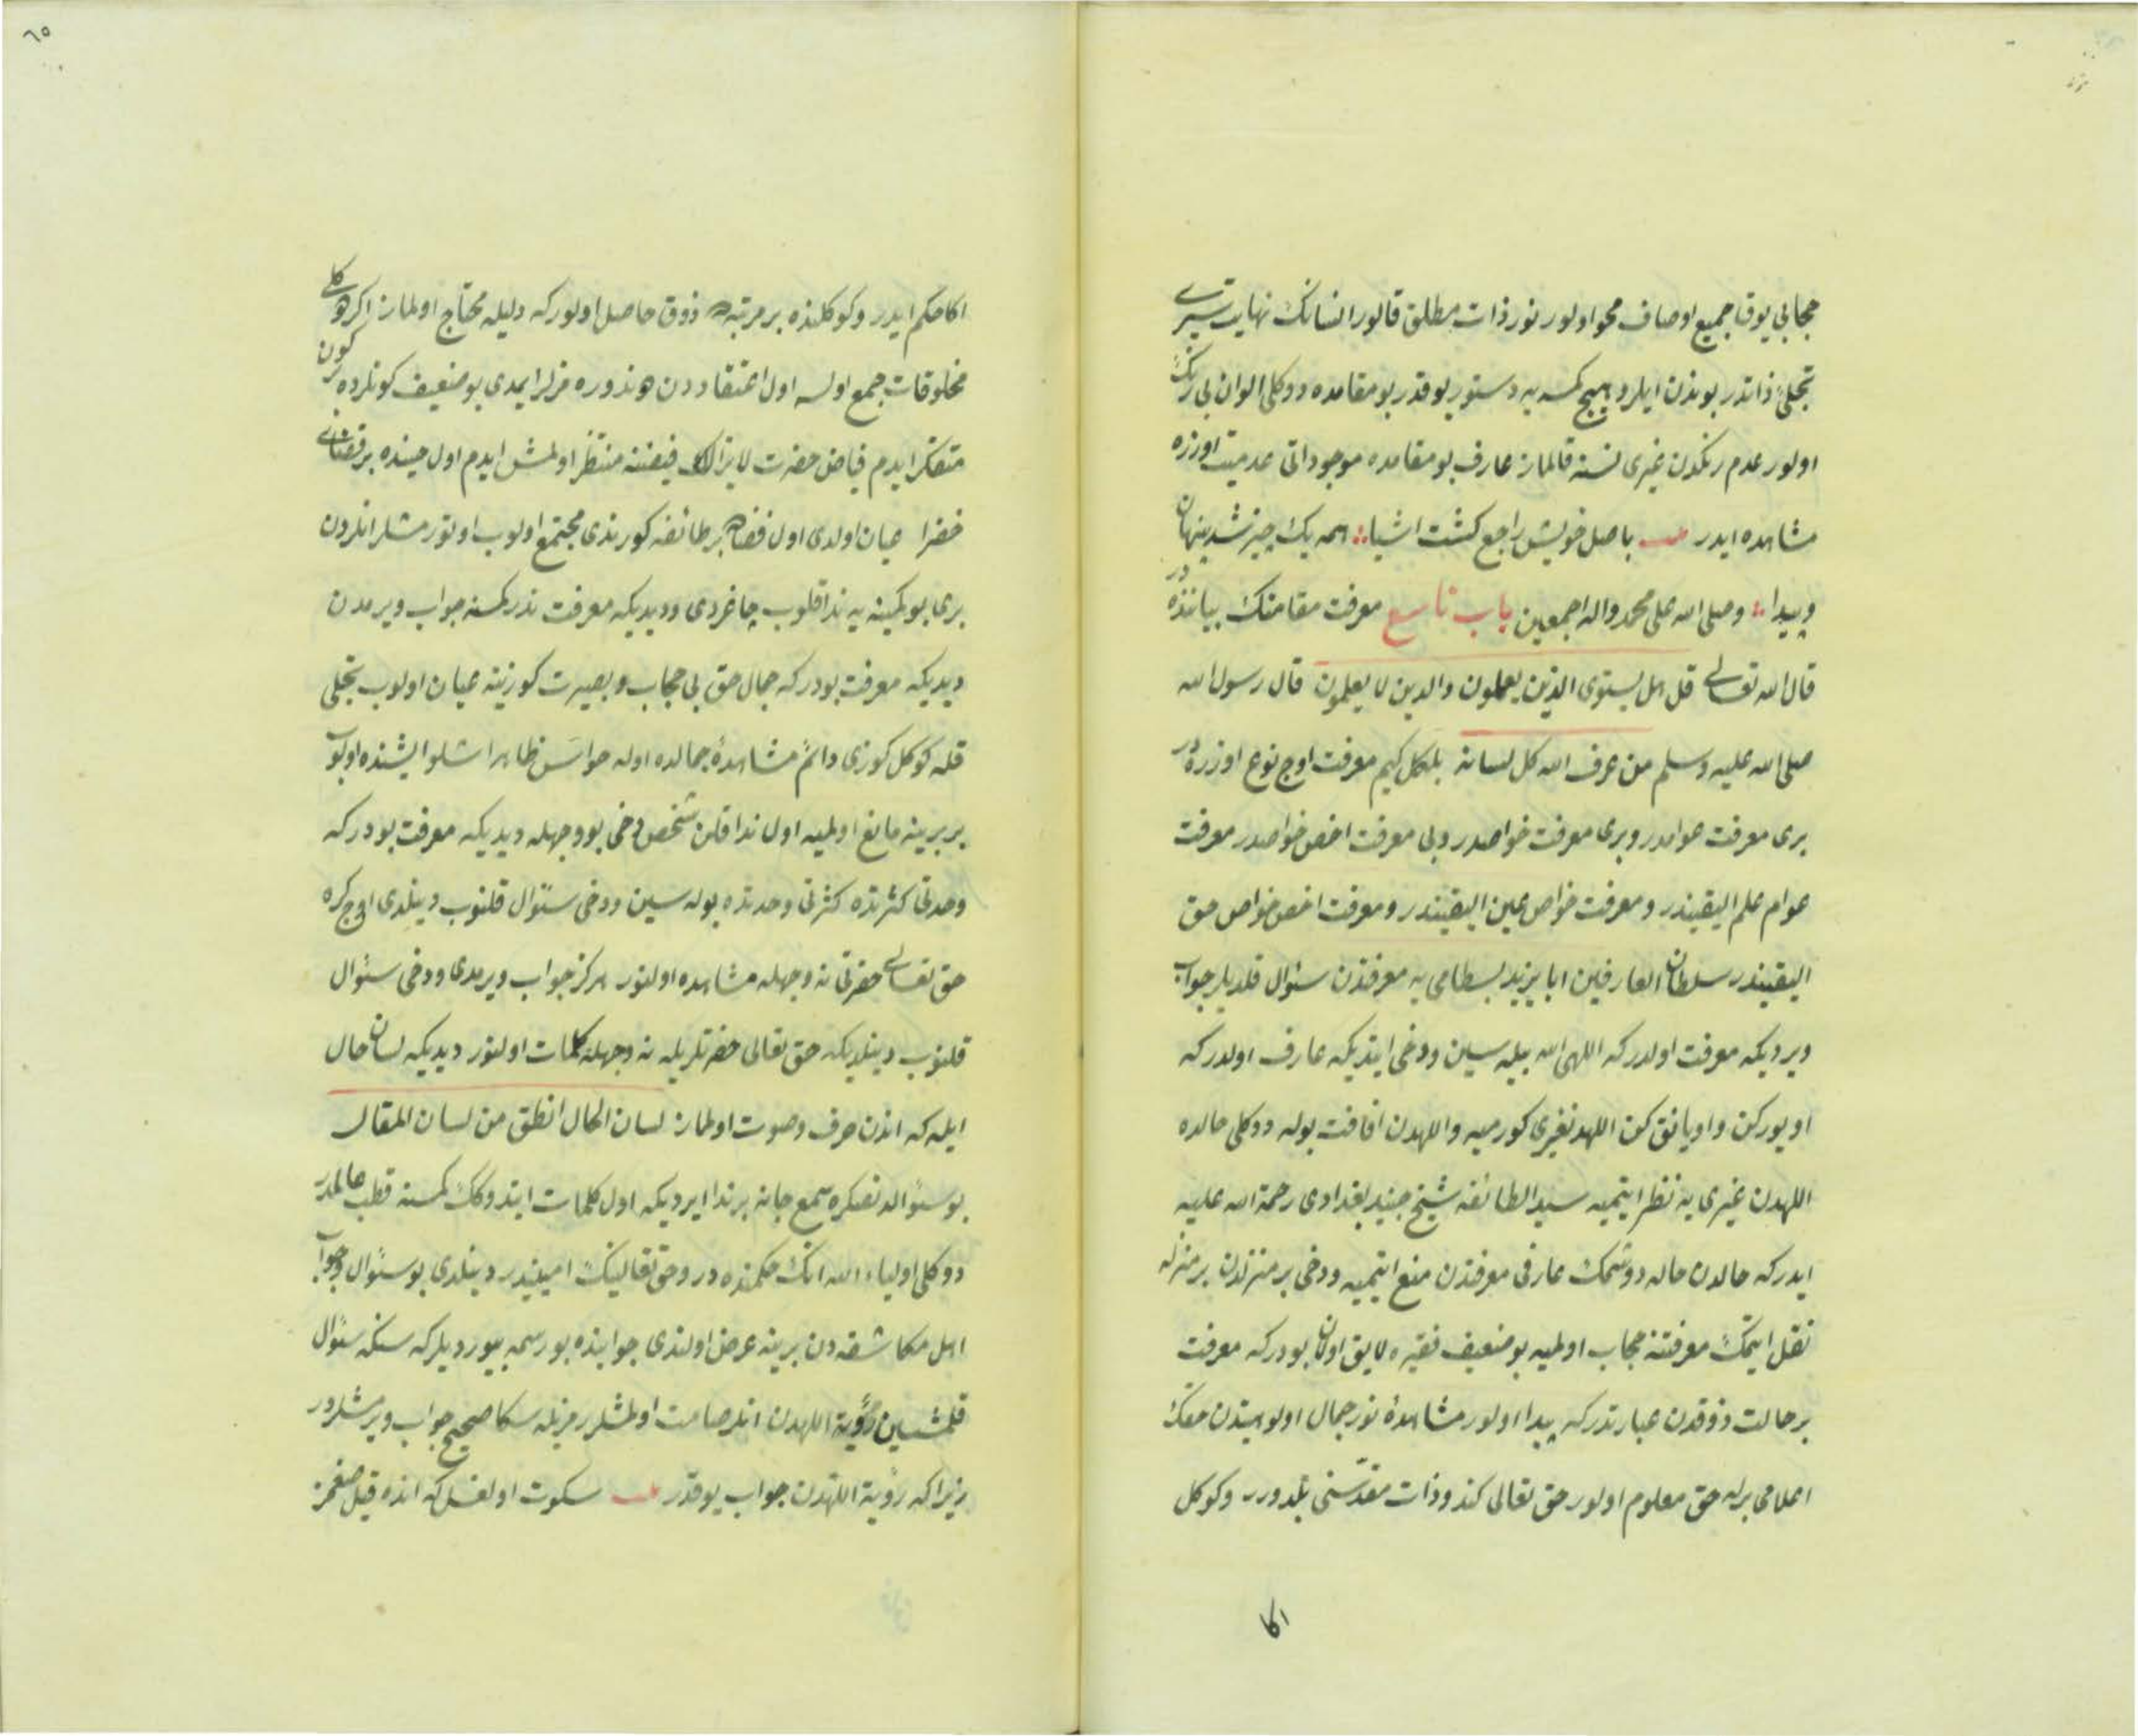 حجابی یوق جمیع اوصاف محو اولور نور ذات مطلق قالور انسانك نهایت سیری
تجلئ ذاتدر بوندن ایلرو هیچ کمسه یه دستور یوقدر بو مقامده دوکلی الوان بی رنك
اولور عدم رنکدن غیری نسنه قالماز عارف بو مقامده موجوداتی عدمیت اوزره
مشاهده ایدر باصل خویش راجع کشت اشیا همه یك چیز شد پنهان
و پیدا وصلی الله علی محمد واله اجمعین باب تاسع معرفت مقامنك بیاننده در
قال الله تعالی قل هل یستوی الذین یعلمون والذین لا یعلمون قال رسول الله
صلی الله علیه وسلم من عرف الله کل لسانه بلکل کیم معرفت اوج نوع اوزره در
بری معرفت عوامدر وبری معرفت خواصدر وبی معرفت اخص خواصدر معرفت
عوام علم الیقیندر ومعرفت خواص عین الیقیندر ومعرفت اخص خواص حق
الیقیندر سلطان العارفین ابا یزید بسطامی یه معرفتدن سئوال قلدیلر جواب
ویردیکه معرفت اولدر که اللهی الله بیله سین ودخی ایتدیکه عارف اولدر که
اویورکن واویانق کن اللهدنغیری کورمیه واللهدن افاقت بوله دوکلی حالده
اللهدن غیری یه نظر ایتمیه سید الطائفه شیخ جنید بغدادی رحمة الله علیه
ایدر که حالدن حاله دوشمك عارفی معرفتدن منع ایتمیه ودخی بر منزلدن بر منزله
نقل ایتمك معرفتنه حجاب اولمیه بو ضعیف فقیره لایق اولان بودر که معرفت
بر حالت ذوقدن عبارتدر که پیدا اولور مشاهدۀ نور جمال اولوهیتدن حقك
اعلامی برله حق معلوم اولور حق تعالی کندو ذات مقدّسنی بلدورر وکوکل
اكا
٦٥
اکا حکم ایدر وکوکلنده بر مرتبه ذوق حاصل اولور که دلیله محتاج اولماز اکر کلی
مخلوقات جمع اولسه اول اعتقاددن دوندوره مزلر ایمدی بو ضعیف کونلرده بر کون
متفکر ایدم فیاض حضرت لا یزالك فیضنه منتظر اولمش ایدم اول حینده بر فضای
خضرا عیان اولدی اول فضاده بر طائفه کورندی مجتمع اولوب اوتورمشلر انلردن
بری بو کمینه یه ندا قلوب چاغردی ودیدیکه معرفت ندر کمسنه جواب ویرمدن
دیدیکه معرفت بودر که جمال حق بی حجاب و بصیرت کوزینه عیان اولوب تجلی
قله کوکل کوزی دائم مشاهدۀ جمالده اوله حواس ظاهر اشلو ایشنده اولوب
بر برینه مانع اولمیه اول ندا قلن شخص دخی بو وجهله دیدیکه معرفت بودر که
وحدتی کثرتده کثرتی وحدتده بوله سین ودخی سئوال قلنوب دینلدی اوج کره
حق تعالی حضرتی نه وجهله مشاهده اولنور هرکز جواب ویرمدی ودخی سئوال
قلنوب دینلدیکه حق تعالی حضرتلریله نه وجهله کلمات اولنور دیدیکه لسان حال
ایله که اندن حرف وصوت اولماز لسان الحال انطق من لسان المقال
بو سئوالدنصکره سمع جانه بر ندا ایردیکه اول کلمات ایتدوکك کمسنه قطب عالمدر
دوکلی اولیاء الله انك حکمنده در وحق تعالینك امینیدر دینلدی بو سئوال وجواب
اهل مکاشفه دن برینه عرض اولندی جوابنده بو رسمه بیوردیلر که سنکه سئوال
قلمشسین رؤیة اللهدن انلر صامت اولمشلر رمزیله سکا صحیح جواب ویرمشلردر
زیرا که رؤیة اللهدن جواب یوقدر سکوت اولغل که انده قیل صغمز